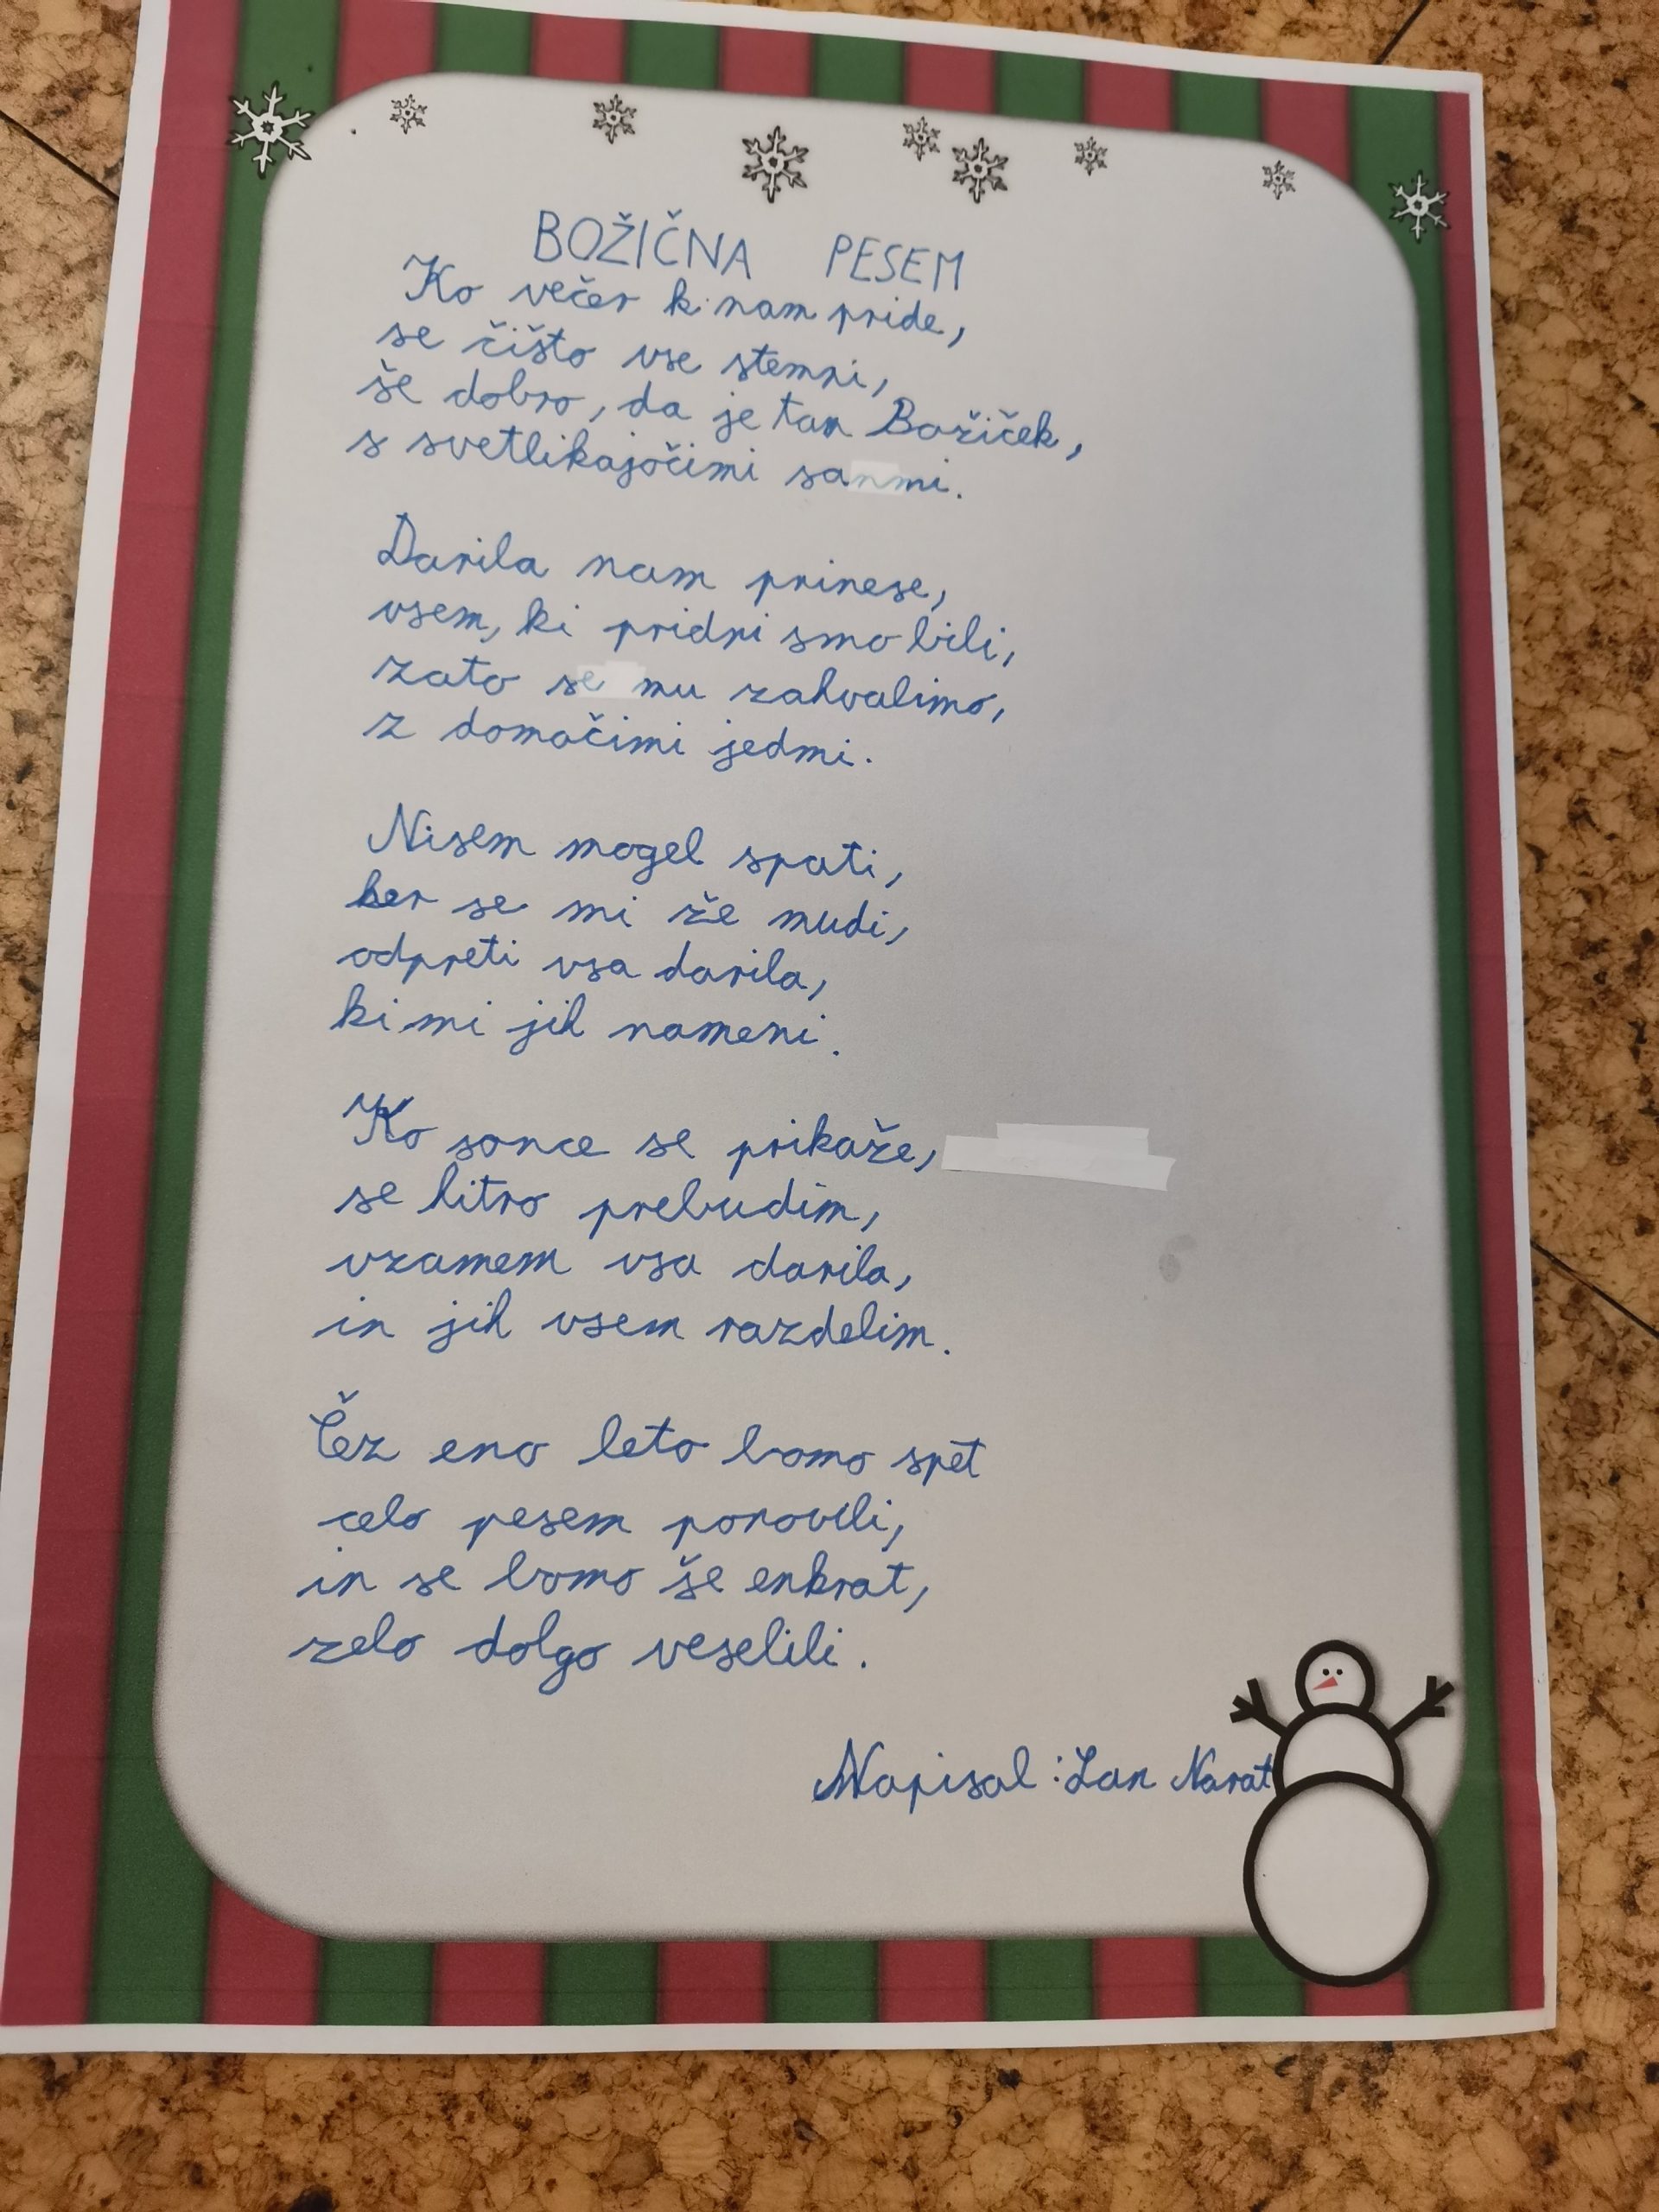 BOŽIČNA PESEM
Ko večer k nam pride,
se čišto vse stemni,
še dobro, da je tan Božiček,
s svetlikajočimi sanmi.
Darila nam prinese,
vsem, ki pridni smo bili,
zato se mu zahvalimo,
z domačimi jedmi.
Nisem mogel spati,
ker se mi že mudi,
odpreti vsa darila,
ki mi jih nameni.
Ko sonce se prikaže,
se hitro prebudim,
vzamem vsa darila,
in jih vsem razdelim.
Čez eno leto bomo spet
celo pesem ponovili,
in se bomo še enkrat,
zelo dolgo veselili.
Napisal: Lan Narat